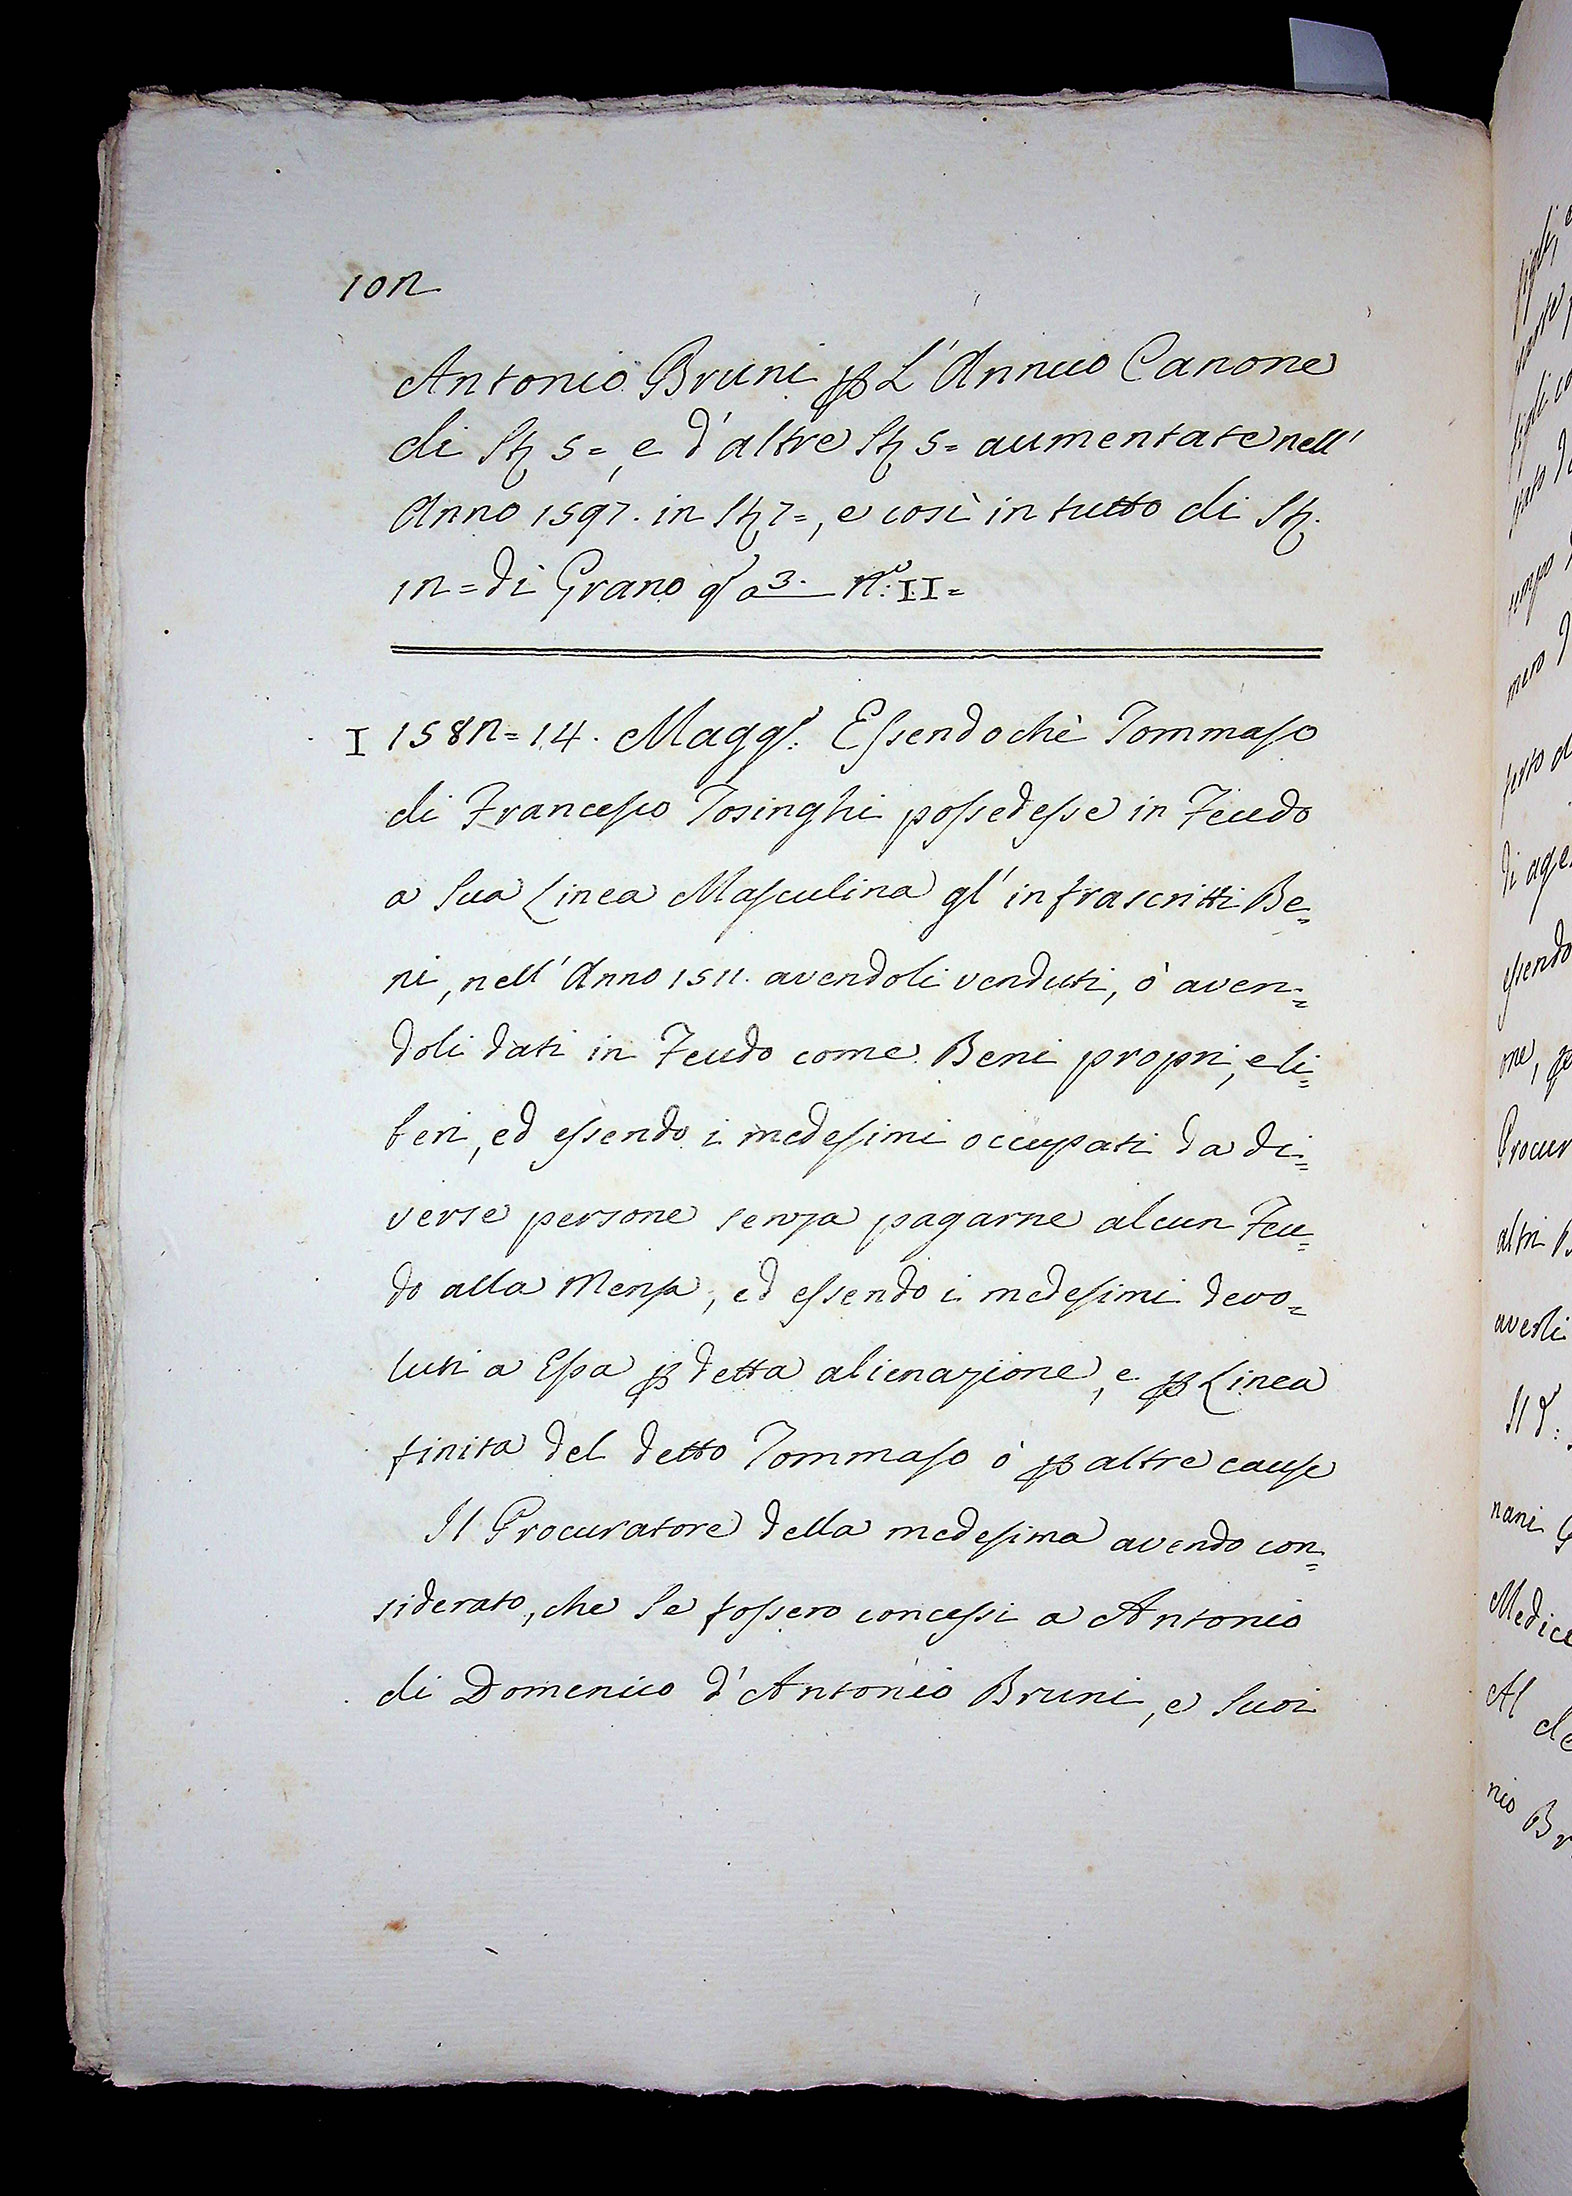 102
Antonio Bruni p L'Annuo Canone
di St. 5=, e d'altre St. 5= aumentate nell'
Anno 1597. in St. 7=, e così in tutto di St.
12= di Grano q a 3. N.º: II=
I 1582= 14. Magg.º: Essendochè Tommaso
di Francesco Tosinghi possedesse in Feudo
a Sua Linea Masculina gl'infrascritti Be=
ni, nell'Anno 1511. avendoli venduti, ò aven=
doli dati in Feudo come Beni propri, e li=
beri, ed essendo i medesimi occupati da di=
verse persone senza pagarne alcun Feu=
do alla Mensa, ed essendo i medesimi devo=
luti a Essa p detta alienazione, e p Linea
finita del detto Tommaso ò p altre cause
Il Procuratore della medesima avendo con=
siderato, che Se fossero concessi a Antonio
di Domenico d'Antonio Bruni, e Suoi